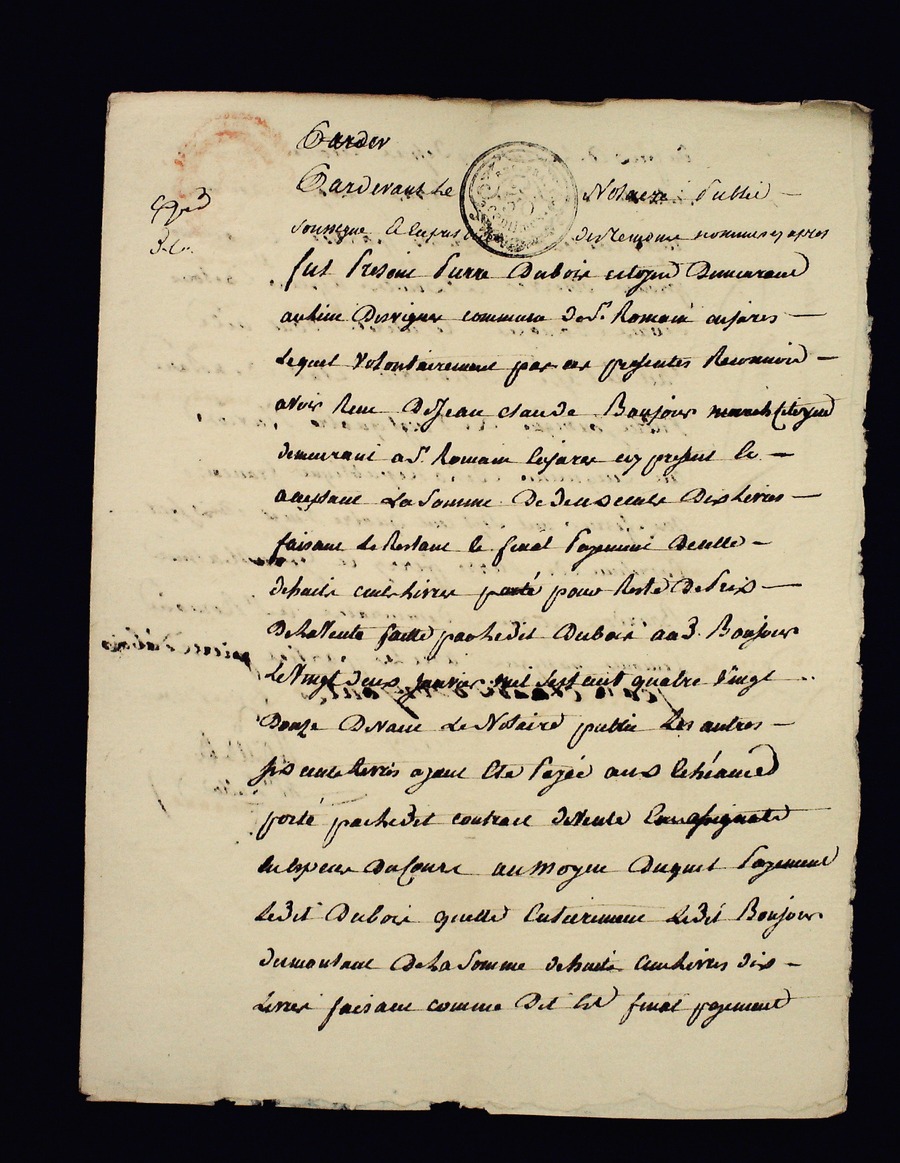 Pardev
Pardevant Le Notaire Public
soussigne & en presence des temoins nommes apres
fut Present Pierre Dubois citoyen Demeurant
au lieu Desvignes commune de St Romain en jarés
Lequel volontairement par ces presentes Reconnoit
avoir Recu De Jean claude Bonjour march citoyen
demeurant a St Romain en jarés icy present &
acceptant La somme De deux cents Dix Livres
faisant Le Restant & final Payement De celle
de huit cent Livres porté pour Reste De Prix
De La Vente faitte par Ledit Dubois au d. Bonjour
Le Vingt deux janvier mil sept cent quatre Vingt
Douze Devant Le Notaire public Les autres
six cents Livres ayant Eté Payée aux Echéances
porté par Ledit contract de Vente En assignats
En Especes Du Cours au Moyen Duquel Payement
Ledit Dubois quitte Entierement Ledit Bonjour
du montant De La somme de huit cent Livres dix
Livres faisant comme Dit Est final payement
pierre dubois